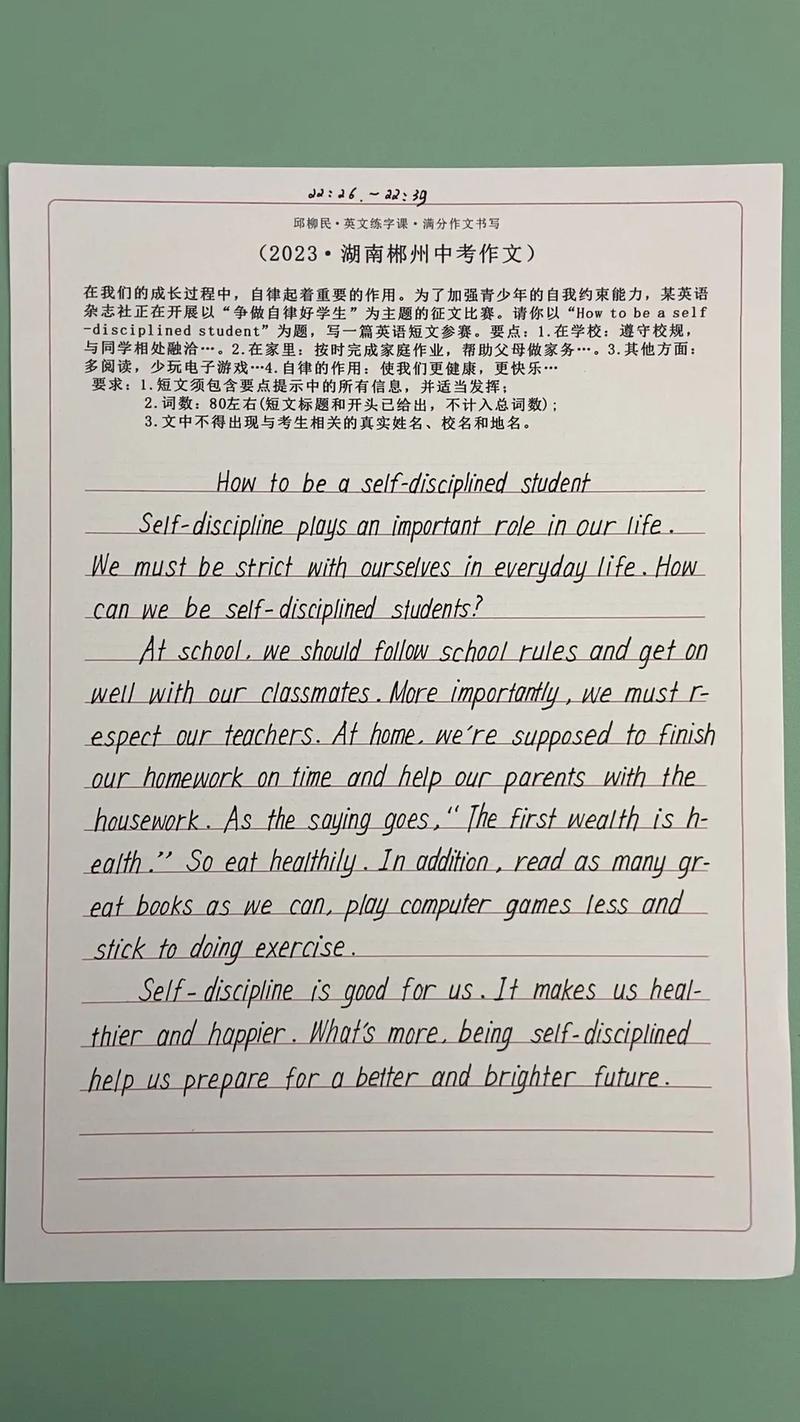 22:26.~22:39
邱柳民·英文练字课·满分作文书写
（2023·湖南郴州中考作文）
在我们的成长过程中，自律起着重要的作用。为了加强青少年的自我约束能力，某英语
杂志社正在开展以“争做自律好学生”为主题的征文比赛。请你以“How to be a self
-disciplined student”为题，写一篇英语短文参赛。要点：1.在学校：遵守校规，
与同学相处融洽…。2.在家里：按时完成家庭作业，帮助父母做家务…。3.其他方面：
多阅读，少玩电子游戏…4.自律的作用：使我们更健康，更快乐…
要求：1.短文须包含要点提示中的所有信息，并适当发挥；
2.词数：80左右(短文标题和开头已给出，不计入总词数)；
3.文中不得出现与考生相关的真实姓名、校名和地名。
How to be a self-disciplined student
Self-discipline plays an important role in our life.
We must be strict with ourselves in everyday life. How
can we be self-disciplined students?
At school, we should follow school rules and get on
well with our classmates. More importantly, we must r-
espect our teachers. At home, we're supposed to finish
our homework on time and help our parents with the
housework. As the saying goes, “The first wealth is h-
ealth.” So eat healthily. In addition, read as many gr-
eat books as we can, play computer games less and
stick to doing exercise.
Self-discipline is good for us. It makes us heal-
thier and happier. What's more, being self-disciplined
help us prepare for a better and brighter future.